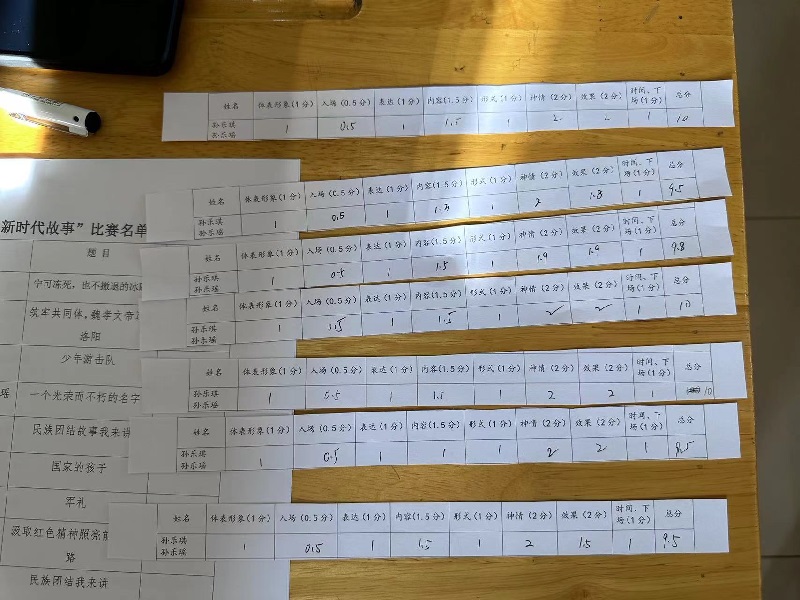 姓名 体表形象(1分) 入场(0.5分) 表达(1分) 内容(1.5分) 形式(1分) 神情(2分) 效果(2分) 时间、下场(1分) 总分
孙乐琪 孙乐瑶 1 0.5 1 1.5 1 2 2 1 10
姓名 体表形象(1分) 入场(0.5分) 表达(1分) 内容(1.5分) 形式(1分) 神情(2分) 效果(2分) 时间、下场(1分) 总分
孙乐琪 孙乐瑶 1 0.5 1 1.3 1 2 1.8 1 9.5
姓名 体表形象(1分) 入场(0.5分) 表达(1分) 内容(1.5分) 形式(1分) 神情(2分) 效果(2分) 时间、下场(1分) 总分
孙乐琪 孙乐瑶 1 0.5 1 1.5 1 1.9 1.9 1 9.8
姓名 体表形象(1分) 入场(0.5分) 表达(1分) 内容(1.5分) 形式(1分) 神情(2分) 效果(2分) 时间、下场(1分) 总分
孙乐琪 孙乐瑶 1 0.5 1 1.5 1 2 2 1 10
姓名 体表形象(1分) 入场(0.5分) 表达(1分) 内容(1.5分) 形式(1分) 神情(2分) 效果(2分) 时间、下场(1分) 总分
孙乐琪 孙乐瑶 1 0.5 1 1.5 1 2 2 1 10
姓名 体表形象(1分) 入场(0.5分) 表达(1分) 内容(1.5分) 形式(1分) 神情(2分) 效果(2分) 时间、下场(1分) 总分
孙乐琪 孙乐瑶 1 0.5 1 1 1 2 2 1 9.5
姓名 体表形象(1分) 入场(0.5分) 表达(1分) 内容(1.5分) 形式(1分) 神情(2分) 效果(2分) 时间、下场(1分) 总分
孙乐琪 孙乐瑶 1 0.5 1 1.5 1 2 1.5 1 9.5
新时代故事”比赛名单
题目
宁可冻死，也不撤退的冰
筑牢共同体，魏孝文帝
洛阳
少年游击队
瑶 一个光荣而不朽的名字
民族团结故事我来讲
国家的孩子
军礼
汲取红色精神照亮
路
民族团结我来讲